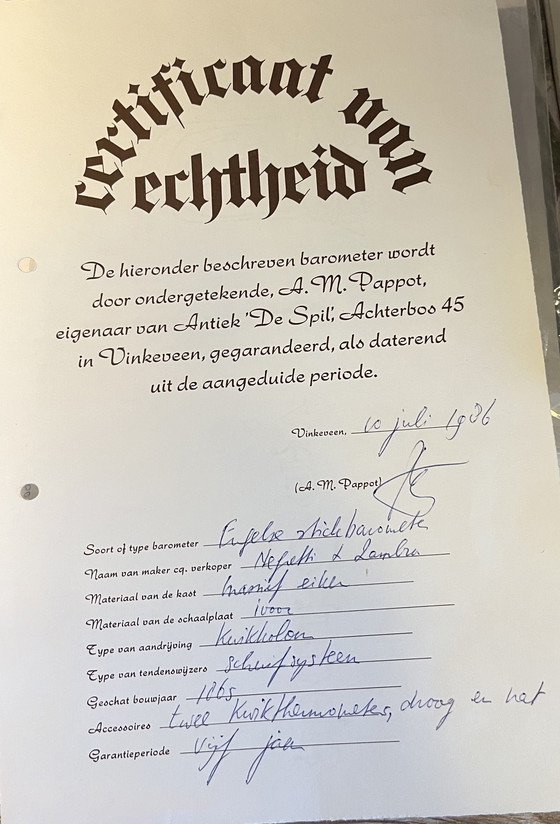 certificaat van
echtheid
De hieronder beschreven barometer wordt
door ondergetekende, A. M. Pappot,
eigenaar van Antiek 'De Spil', Achterbos 45
in Vinkeveen, gegarandeerd, als daterend
uit de aangeduide periode.
Vinkeveen, 10 juli 1986
(A. M. Pappot)
Soort of type barometer Engelse stickbarometer
Naam van maker cq. verkoper Negretti & Zambra
Materiaal van de kast massief eiken
Materiaal van de schaalplaat ivoor
Type van aandrijving Kwikkolom
Type van tendenswijzers schuifsysteem
Geschat bouwjaar 1865
Accessoires twee Kwikthermometers, droog en nat
Garantieperiode vijf jaar